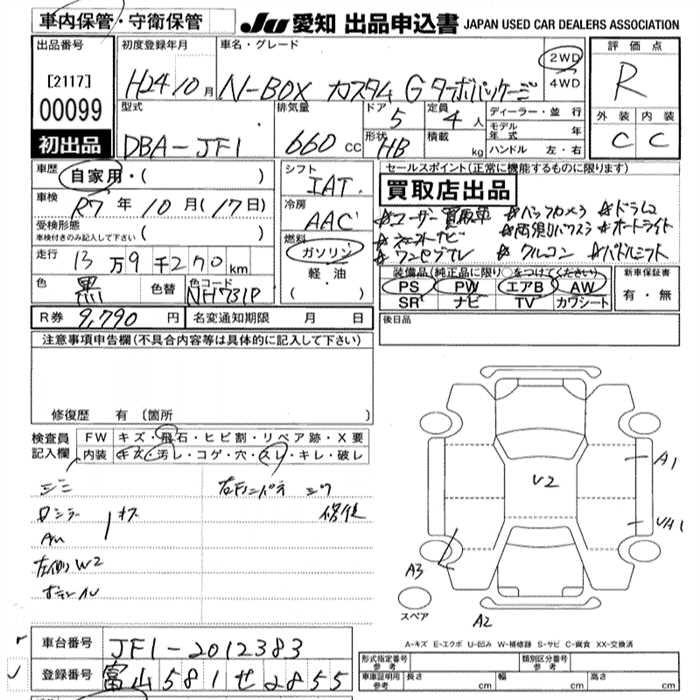 車内保管・守衛保管
JU 愛知 出品申込書 JAPAN USED CAR DEALERS ASSOCIATION
出品番号
[2117]
00099
初出品
初度登録年月
H24 10月
車名・グレード
N-BOX カスタム G ターボパッケージ
2WD
4WD
評価点
R
外装 内装
C C
型式
DBA-JF1
排気量
660 CC
ドア
5
定員
4人
形状
HB
積載
kg
ディーラー・並行
モデル年式 年
ハンドル 左・右
車歴
自家用・( )
車検
R7年10月(17日)
受検形態
車検付きのみ記入して下さい ( )
走行
13万9千270km
色
黒
色替
色コード
NH731P
シフト
IAT
冷房
AAC
燃料
ガソリン
軽油
( ・ )
セールスポイント(正常に機能するものに限ります)
買取店出品
#ユーザー買取車 #バックカメラ #ドラレコ
#両側パワスラ #オートライト
#ワンセグTV #クルコン #パドルシフト
装備品(純正品に限り○をつけてください)
PS PW エアB AW
SR ナビ TV カワシート
新車保証書
有・無
R券 9,790円
名変通知期限 月 日
後日品
注意事項申告欄(不具合内容等は具体的に記入して下さい)
修復歴 有 〔箇所 〕
検査員記入欄
FW キズ・飛石・ヒビ割・リペア跡・X要
内装 キズ・汚レ・コゲ・穴・スレ・キレ・破レ
シミ
左W2
V2
A1
A3
A2
スペア
A-キズ E-エクボ U-凹み W-補修跡 S-サビ C-腐食 XX-交換済
車台番号 JF1-2012383
登録番号 富山581せ2855
形式指定番号
参考
類別区分番号
参考
車庫証明用
参考
長さ cm 幅 cm 高さ cm